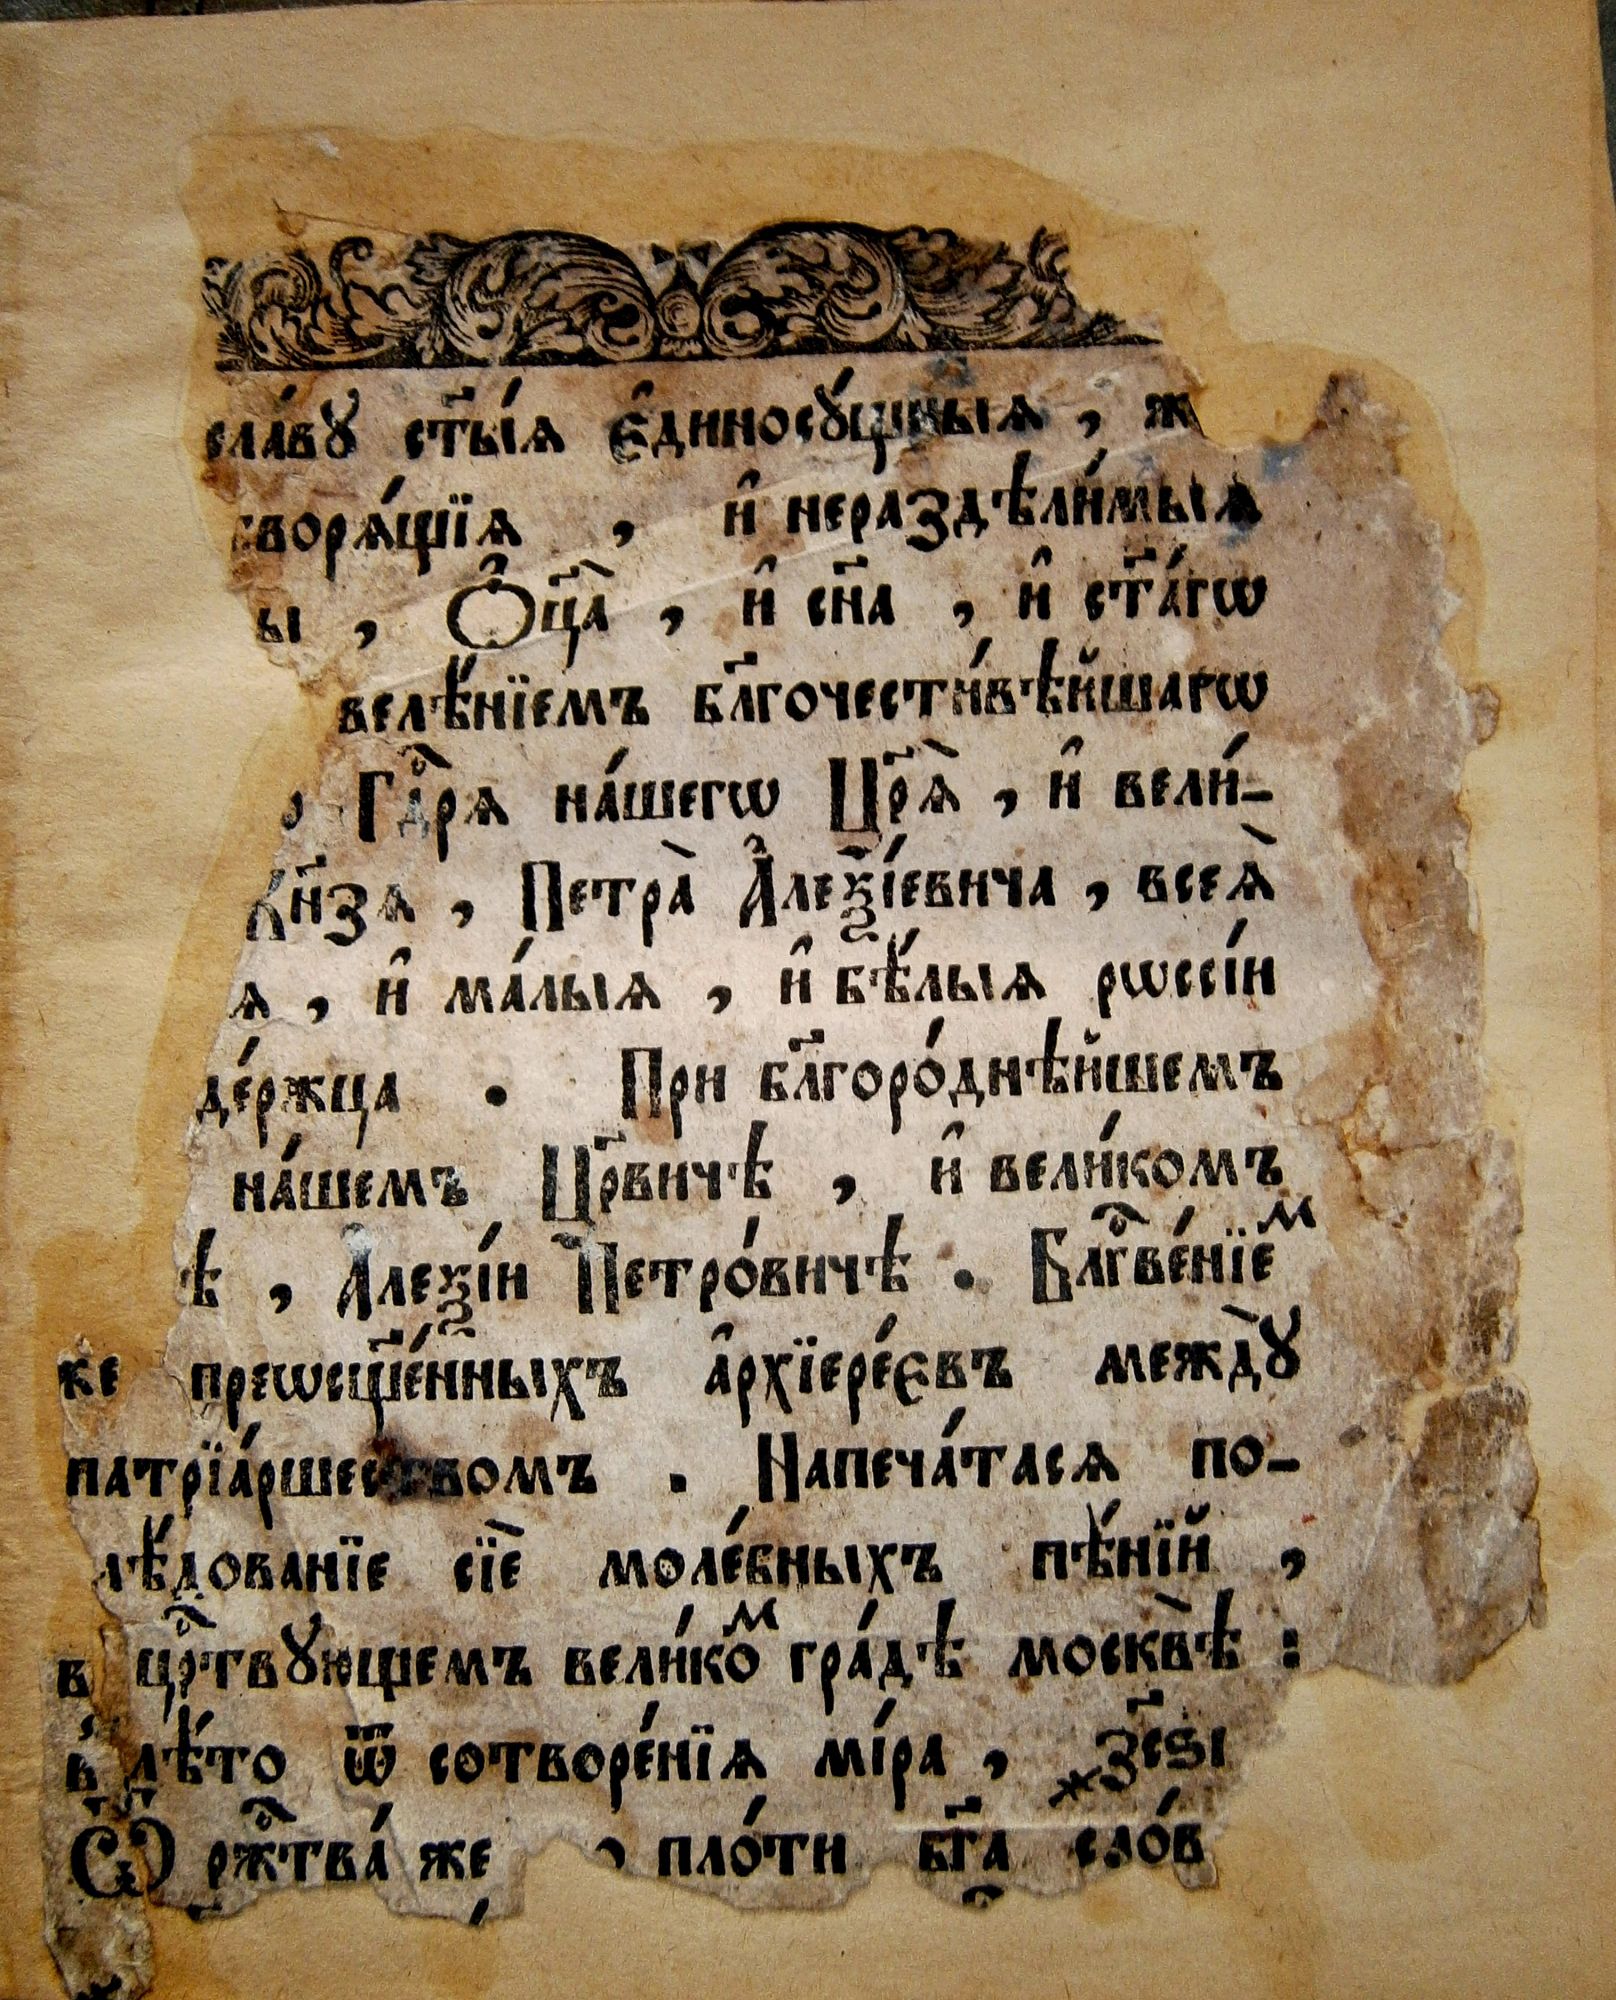 сла́вꙋ ст҃ы́ѧ є҆диносꙋ́щныѧ ,
творѧ́щїѧ , и҆ нераздѣли́мыѧ
, Ѻ҆ц҃а̀ , и҆ сн҃а , и҆ ст҃а́гѡ
велѣ́нїемъ бл҃гочести́вѣйшагѡ
Гдⷭ҇рѧ на́шегѡ Цр҃ѧ̀ , и҆ вели́-
кн҃зѧ , Петра̀ А҆леѯі́евича , всеѧ̀
ѧ , и҆ ма́лыѧ , и҆ бѣ́лыѧ рѡссі́и
де́ржца . При бл҃горо́днѣйшемъ
на́шемъ Цр҃вичѣ , и҆ вели́комъ
ѣ , А҆леѯі́и Петро́вичѣ . Блгⷭ҇ве́нїеⷨ
же преѡсщ҃е́нныхъ а҆рхїере́євъ междꙋ̀
патрїа́ршеством̾ъ . Напеча́тасѧ по-
лѣ́дованїе сїѐ моле́бныхъ пѣ́нїй ,
в црⷭ҇твꙋющемъ вели́коⷨ гра́дѣ москвѣ̀ :
в лѣ́то ѿ сотворе́нїѧ мі́ра , ҂зс҃ѕі
Ѿ ржⷭ҇тва́ же пло́ти бг҃а сло́в